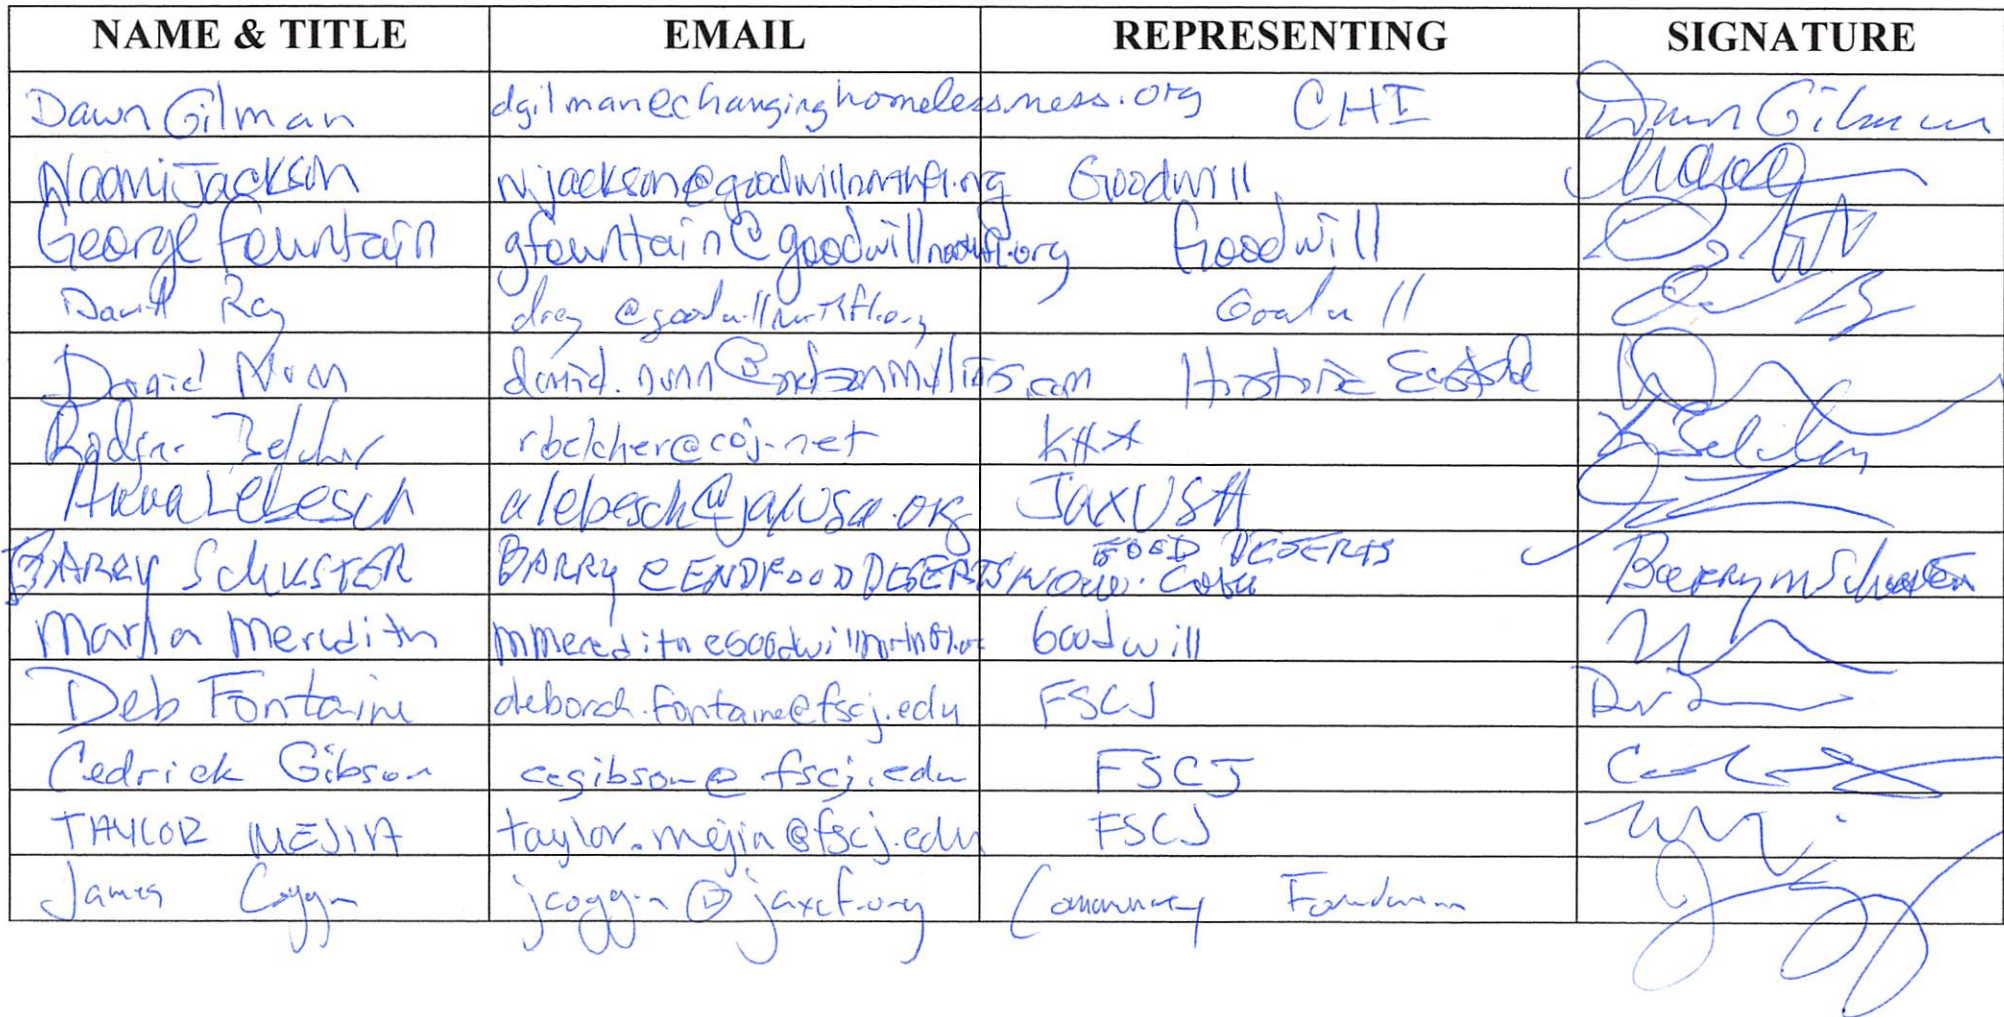 NAME & TITLE EMAIL REPRESENTING SIGNATURE
Dawn Gilman dgilman@changinghomelessness.org CHI Dawn Gilman
Naomi Jackson njackson@goodwillnorthfl.org Goodwill
George Fountain gfountain@goodwillnorthfl.org Goodwill
David Ray dray@goodwillnorthfl.org Goodwill
David Nunn Historic Eastside
Belcher rbelcher@coj.net
Anna Lebesch alebesch@jaxusa.org JAXUSA
BARRY SCHUSTER BARRY@ENDFOODDESERTSNOW.COM FOOD DESERTS Barry M Schuster
Marla Meredith mmeredith@goodwillnorthfl.or Goodwill
Deb Fontaine deborah.fontaine@fscj.edu FSCJ
Cedrick Gibson cegibson@fscj.edu FSCJ
TAYLOR MEJIA taylor.mejia@fscj.edu FSCJ
James Coggin jcoggin@jaxcf.org Community Foundation